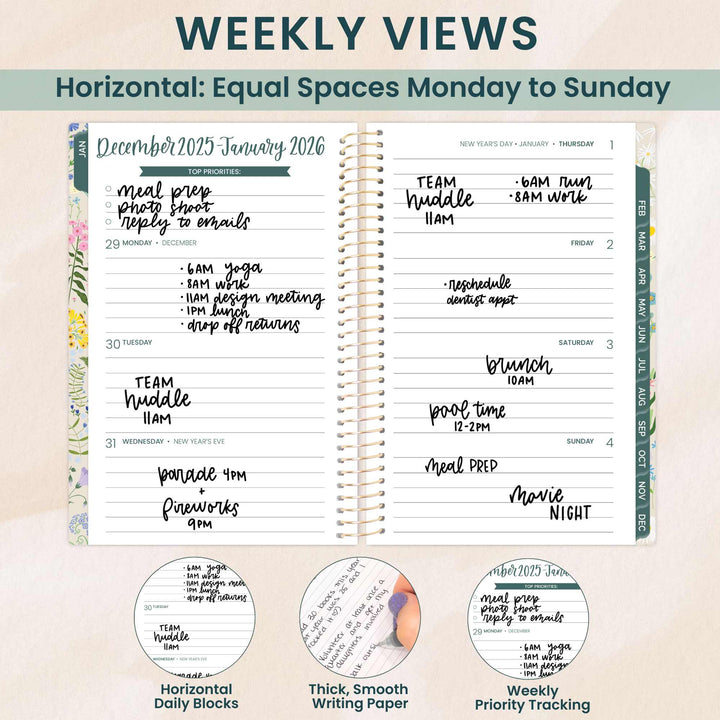 WEEKLY VIEWS
Horizontal: Equal Spaces Monday to Sunday
JAN
December 2025-January 2026
TOP PRIORITIES:
meal prep
photo shoot
reply to emails
29 MONDAY • DECEMBER
• 6AM yoga
• 8AM work
• 11AM design meeting
• 1PM lunch
• drop off returns
30 TUESDAY
TEAM
huddle
11AM
31 WEDNESDAY • NEW YEAR'S EVE
parade 4PM
+
fireworks
9PM
NEW YEAR'S DAY • JANUARY • THURSDAY 1
TEAM
huddle
11AM
• 6AM run
• 8AM work
FRIDAY 2
• reschedule
dentist appt
SATURDAY 3
brunch
10AM
pool time
12-2PM
SUNDAY 4
meal PREP
movie
NIGHT
FEB
MAR
APR
MAY
JUN
JUL
AUG
SEP
OCT
NOV
DEC
• 6AM yoga
• 8AM work
• 11AM design meet
• 1PM lunch
• drop off returns
30 TUESDAY
TEAM
huddle
11AM
WEDNESDAY • NEW YEAR'S EVE
Horizontal
Daily Blocks
30 books this year
year was 25 and I
Volunteer at least once a
quarter and get my
daughters involved
Thick, Smooth
Writing Paper
mber 2025-Janu
TOP PRIORITIES:
meal prep
photo shoot
reply to emails
29 MONDAY • DECEMBER
• 6AM yoga
• 8AM work
• 11AM design
• 1PM lunch
Weekly
Priority Tracking